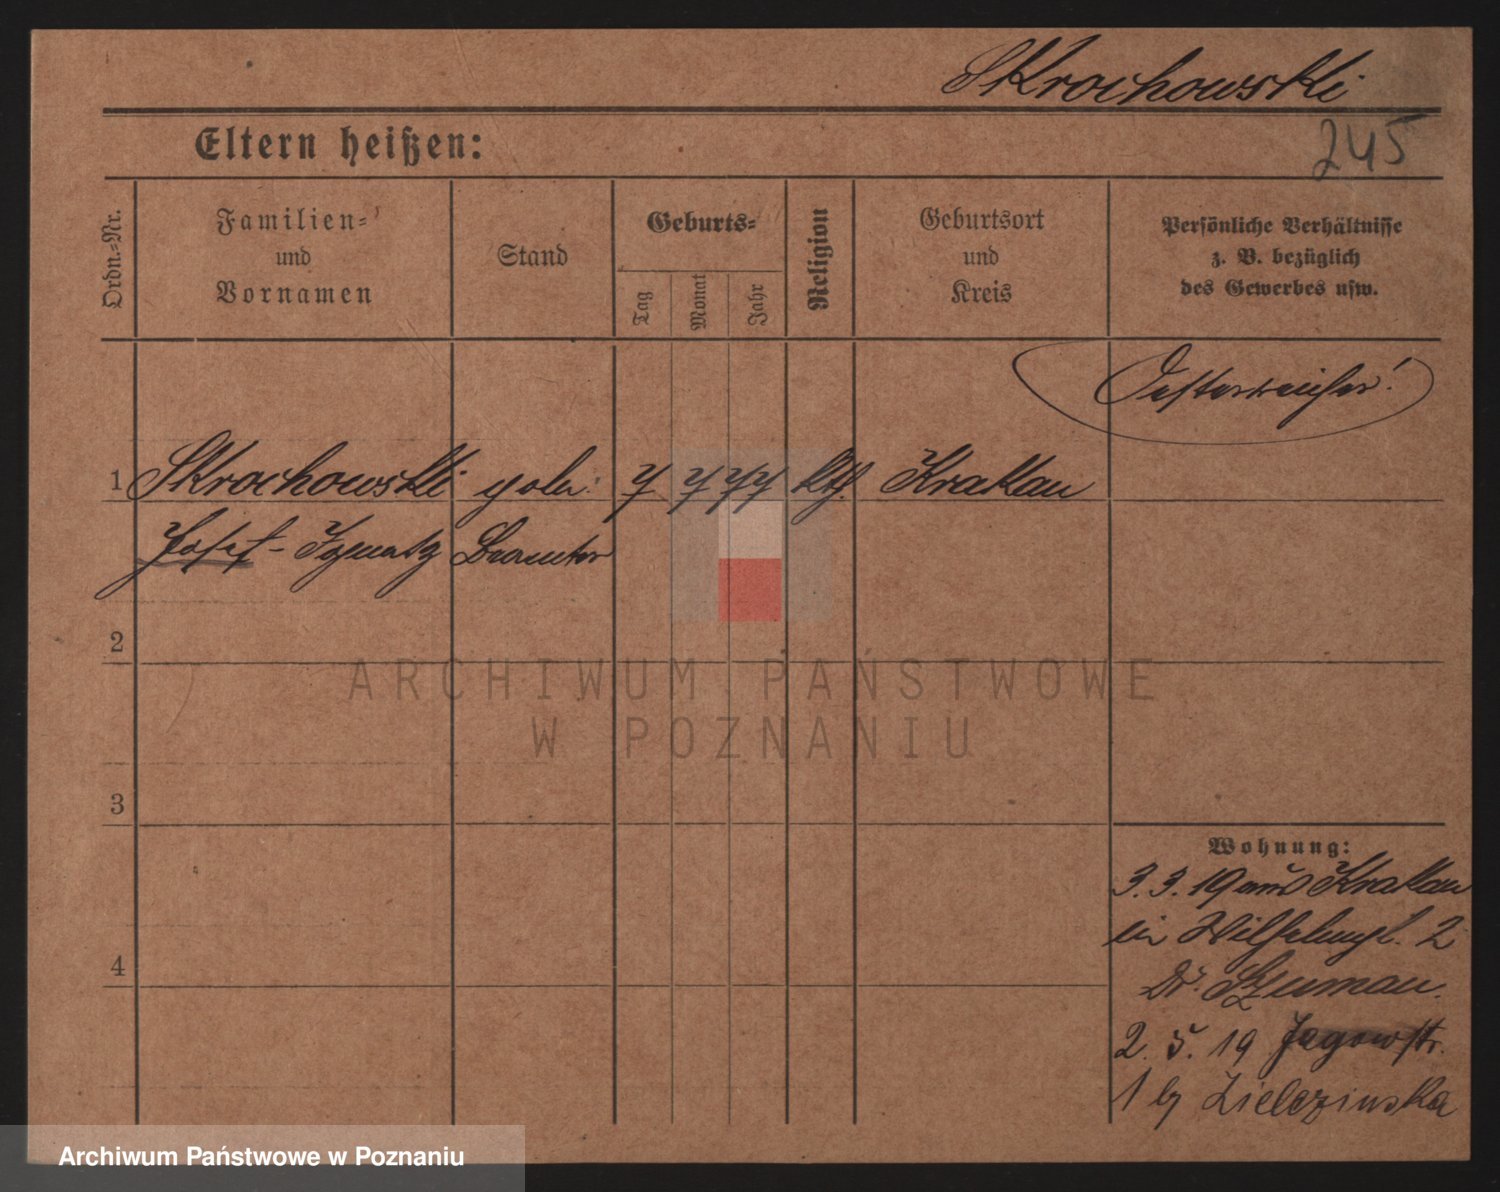 Skrochowski
245
Eltern heißen:
Ordn.-Nr.
Familien- und Vornamen
Stand
Geburts-
Tag
Monat
Jahr
Religion
Geburtsort und Kreis
Persönliche Verhältnisse
z. B. bezüglich
des Gewerbes usw.
Oesterreicher!
1 Skrochowski 7 7 77 kth. Krakau
Josef-Ignatz Beamter
2
ARCHIWUM PAŃSTWOWE
W POZNANIU
3
Wohnung:
3. 3. 19 aus Krakau
in Wilhelmpl. 2
Dr. Szuman.
4
2. 5. 19 Jagowstr.
1 b/ Zielezinska
Archiwum Państwowe w Poznaniu